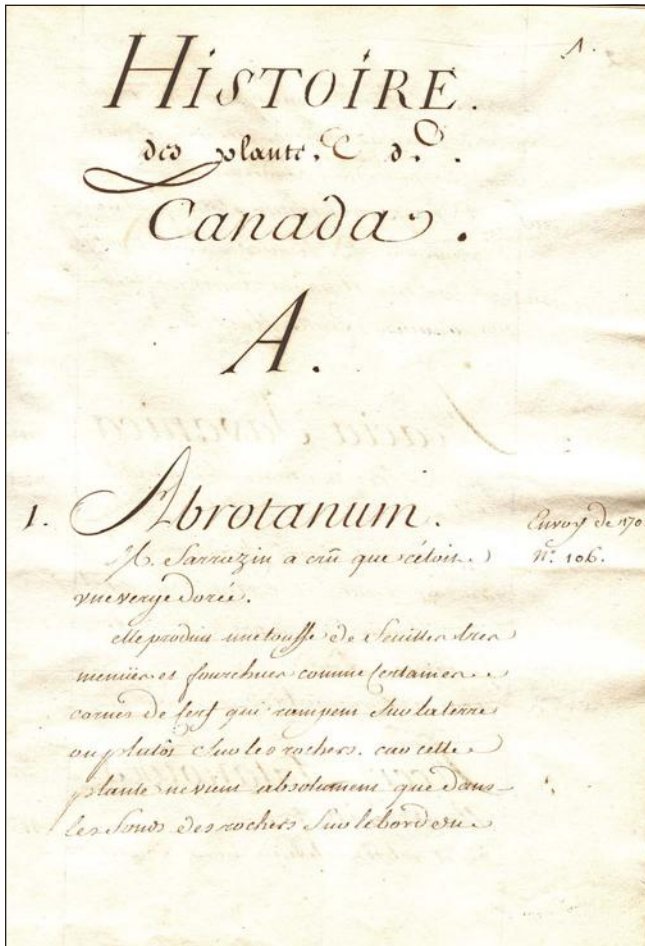 1.
HISTOIRE.
des plantes de
Canada.
A.
1. Abrotanum.
Envoy de 170
N.º 106.
M. Sarrazin a crû que c'étoit
vne verge dorée.
elle produit une touffe de feuilles tres
menües et fourchues comme certaines
cornes de serf qui rampent sur la terre
ou plutôt sur les rochers. car cette
plante ne vient absolument que dans
les fonds des rochers sur le bord